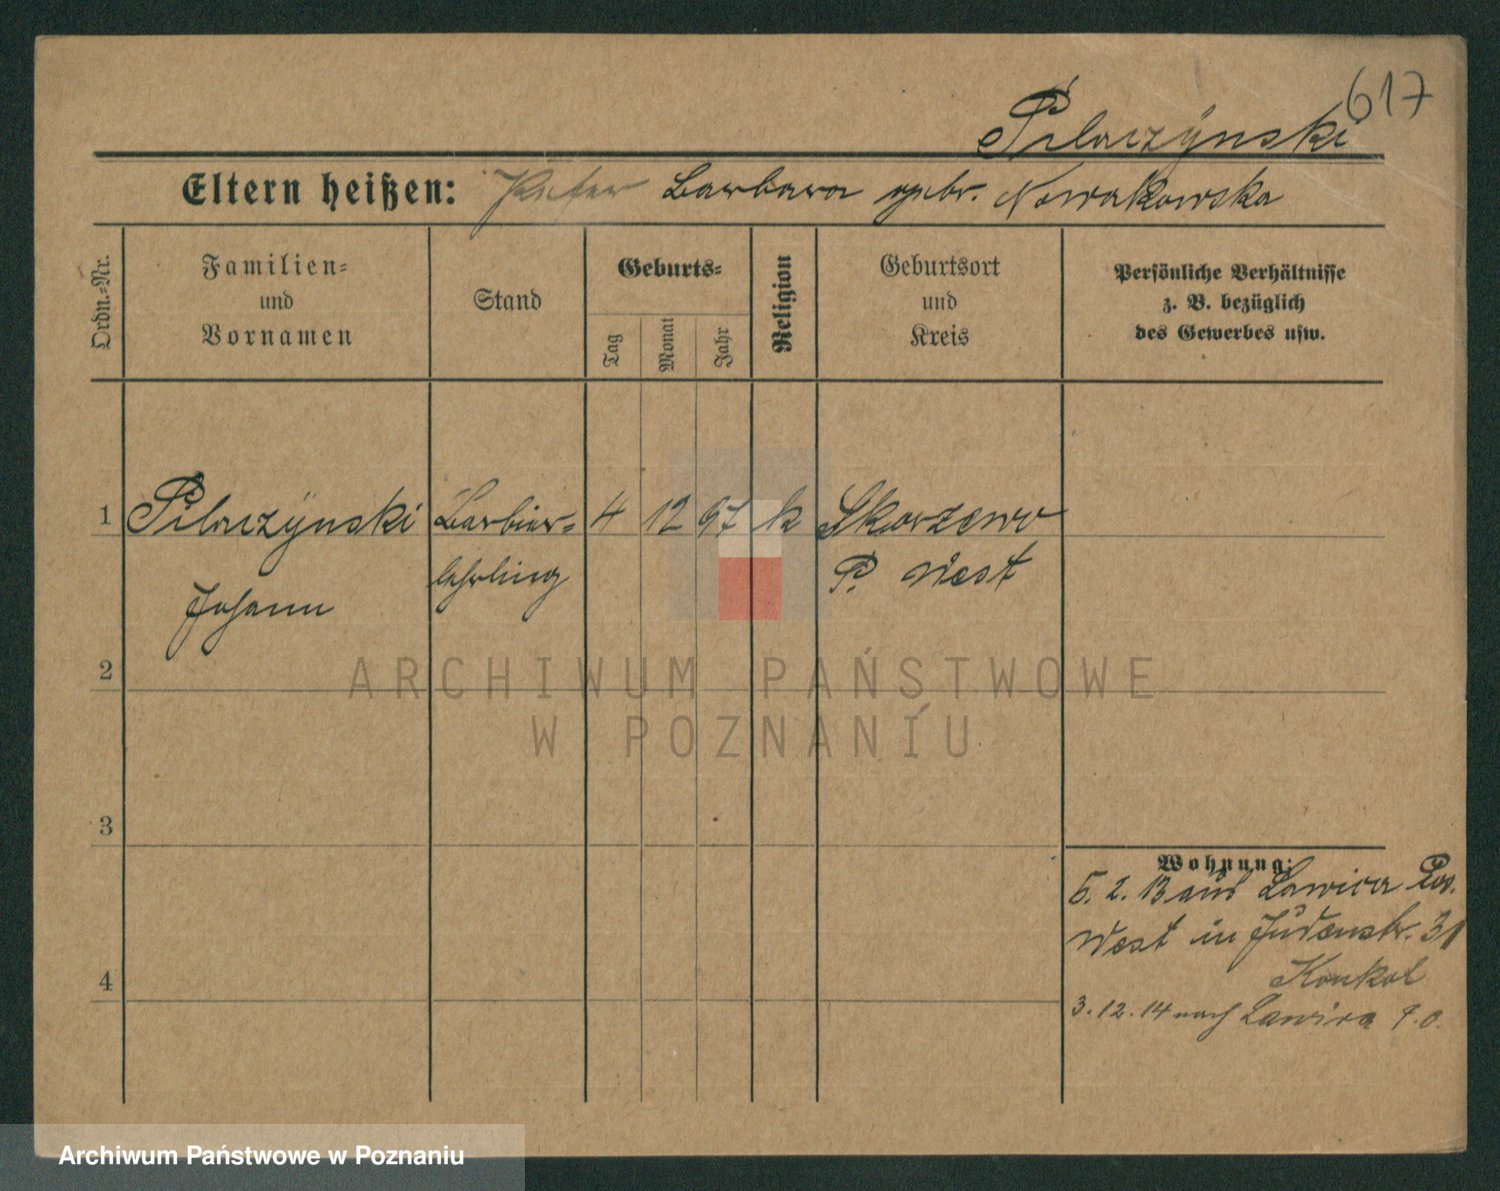 617
Pilarzÿnski
Eltern heißen: Peter Barbara gebr. Nowakowska
Ordn.-Nr.
Familien-
und
Vornamen
Stand
Geburts-
Tag
Monat
Jahr
Religion
Geburtsort
und
Kreis
Persönliche Verhältnisse
z. B. bezüglich
des Gewerbes usw.
1 Pilarzÿnski Barbier- 4 12 97 k Skorzewo
lehrling P. West
Johann
2
3
4
Wohnung:
5. 2. 13 aus Lawica Pos.
West in Judenstr. 31
Konkol
3. 12. 14 nach Lawica P. O.
ARCHIWUM PAŃSTWOWE
W POZNANIU
Archiwum Państwowe w Poznaniu